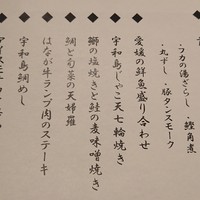 ・フカの湯ざらし ・鰹角煮
・丸ずし ・豚タンスモーク
◆ 愛媛の鮮魚盛り合わせ
◆ 宇和島じゃこ天七輪焼き
◆ 鰤の塩焼きと鮭の麦味噌焼き
◆ 鯛と旬菜の天婦羅
◆ はなが牛ランプ肉のステーキ
◆ 宇和島鯛めし